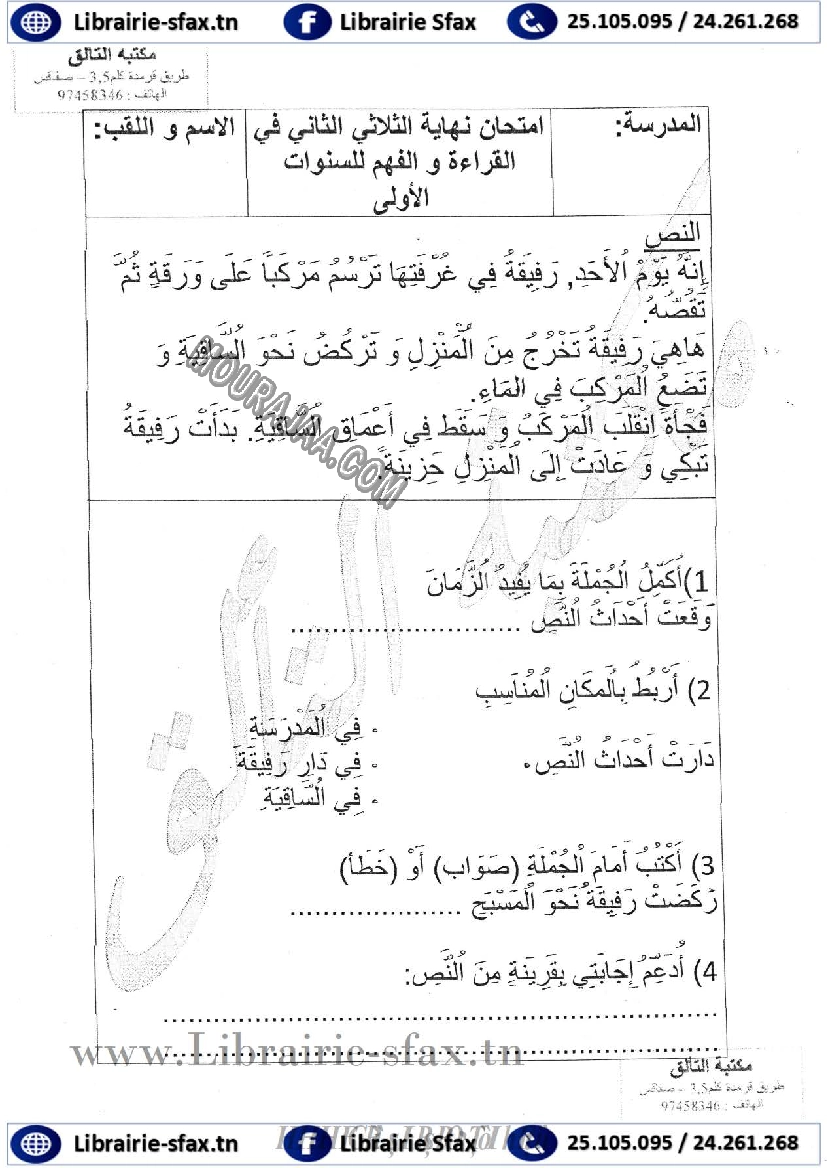 Librairie-sfax.tn Librairie Sfax 25.105.095 / 24.261.268
مكتبة التالق
طريق قرمدة كلم3,5 – صفاقس
الهاتف : 97458346
المدرسة:
امتحان نهاية الثلاثي الثاني في
القراءة و الفهم للسنوات
الأولى
الاسم و اللقب:
النص
إِنَّهُ يَوْمُ الْأَحَدِ, رَفِيقَةُ فِي غُرْفَتِهَا تَرْسُمُ مَرْكَباً عَلَى وَرَقَةٍ ثُمَّ
تَقُصُّهُ.
هَاهِيَ رَفِيقَةُ تَخْرُجُ مِنَ الْمَنْزِلِ وَ تَرْكُضُ نَحْوَ السَّاقِيَةِ وَ
تَضَعُ الْمَرْكَبَ فِي المَاءِ.
فَجْأَةً اِنْقَلَبَ الْمَرْكَبُ وَ سَقَطَ فِي أَعْمَاقِ السَّاقِيَةِ. بَدَأَتْ رَفِيقَةُ
تَبْكِي وَ عَادَتْ إِلَى الْمَنْزِلِ حَزِينَةً.
MOURAJAA.COM
1)أُكَمِّلُ الْجُمْلَةَ بِمَا يُفِيدُ الزَّمَانَ
وَقَعَتْ أَحْدَاثُ النَّصِ ..............................
2) أَرْبُطُ بِالْمَكَانِ الْمُنَاسِبِ
• فِي الْمَدْرَسَةِ
دَارَتْ أَحْدَاثُ النَّصِ• • فِي دَارِ رَفِيقَةَ
• فِي السَّاقِيَةِ
3) أَكْتُبُ أَمَامَ الْجُمْلَةِ (صَوَاب) أَوْ (خَطَأ)
رَكَضَتْ رَفِيقَةُ نَحْوَ الْمَسْبَحِ ......................
4) أُدَعِّمُ إِجَابَتِي بِقَرِينَةٍ مِنَ النَّصِ:
........................................................................
........................................................................
www.Librairie-sfax.tn
مكتبة التالق
طريق قرمدة كلم3,5 – صفاقس
الهاتف : 97458346
Librairie-sfax.tn Librairie Sfax 25.105.095 / 24.261.268